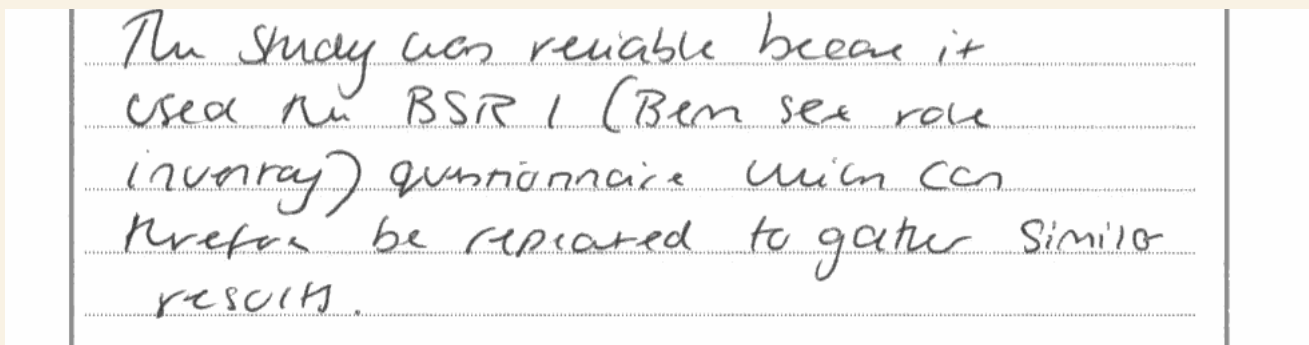 The study was reliable because it
used the BSRI (Bem sex role
inventory) questionnaire which can
therefore be repeated to gather similar
results.